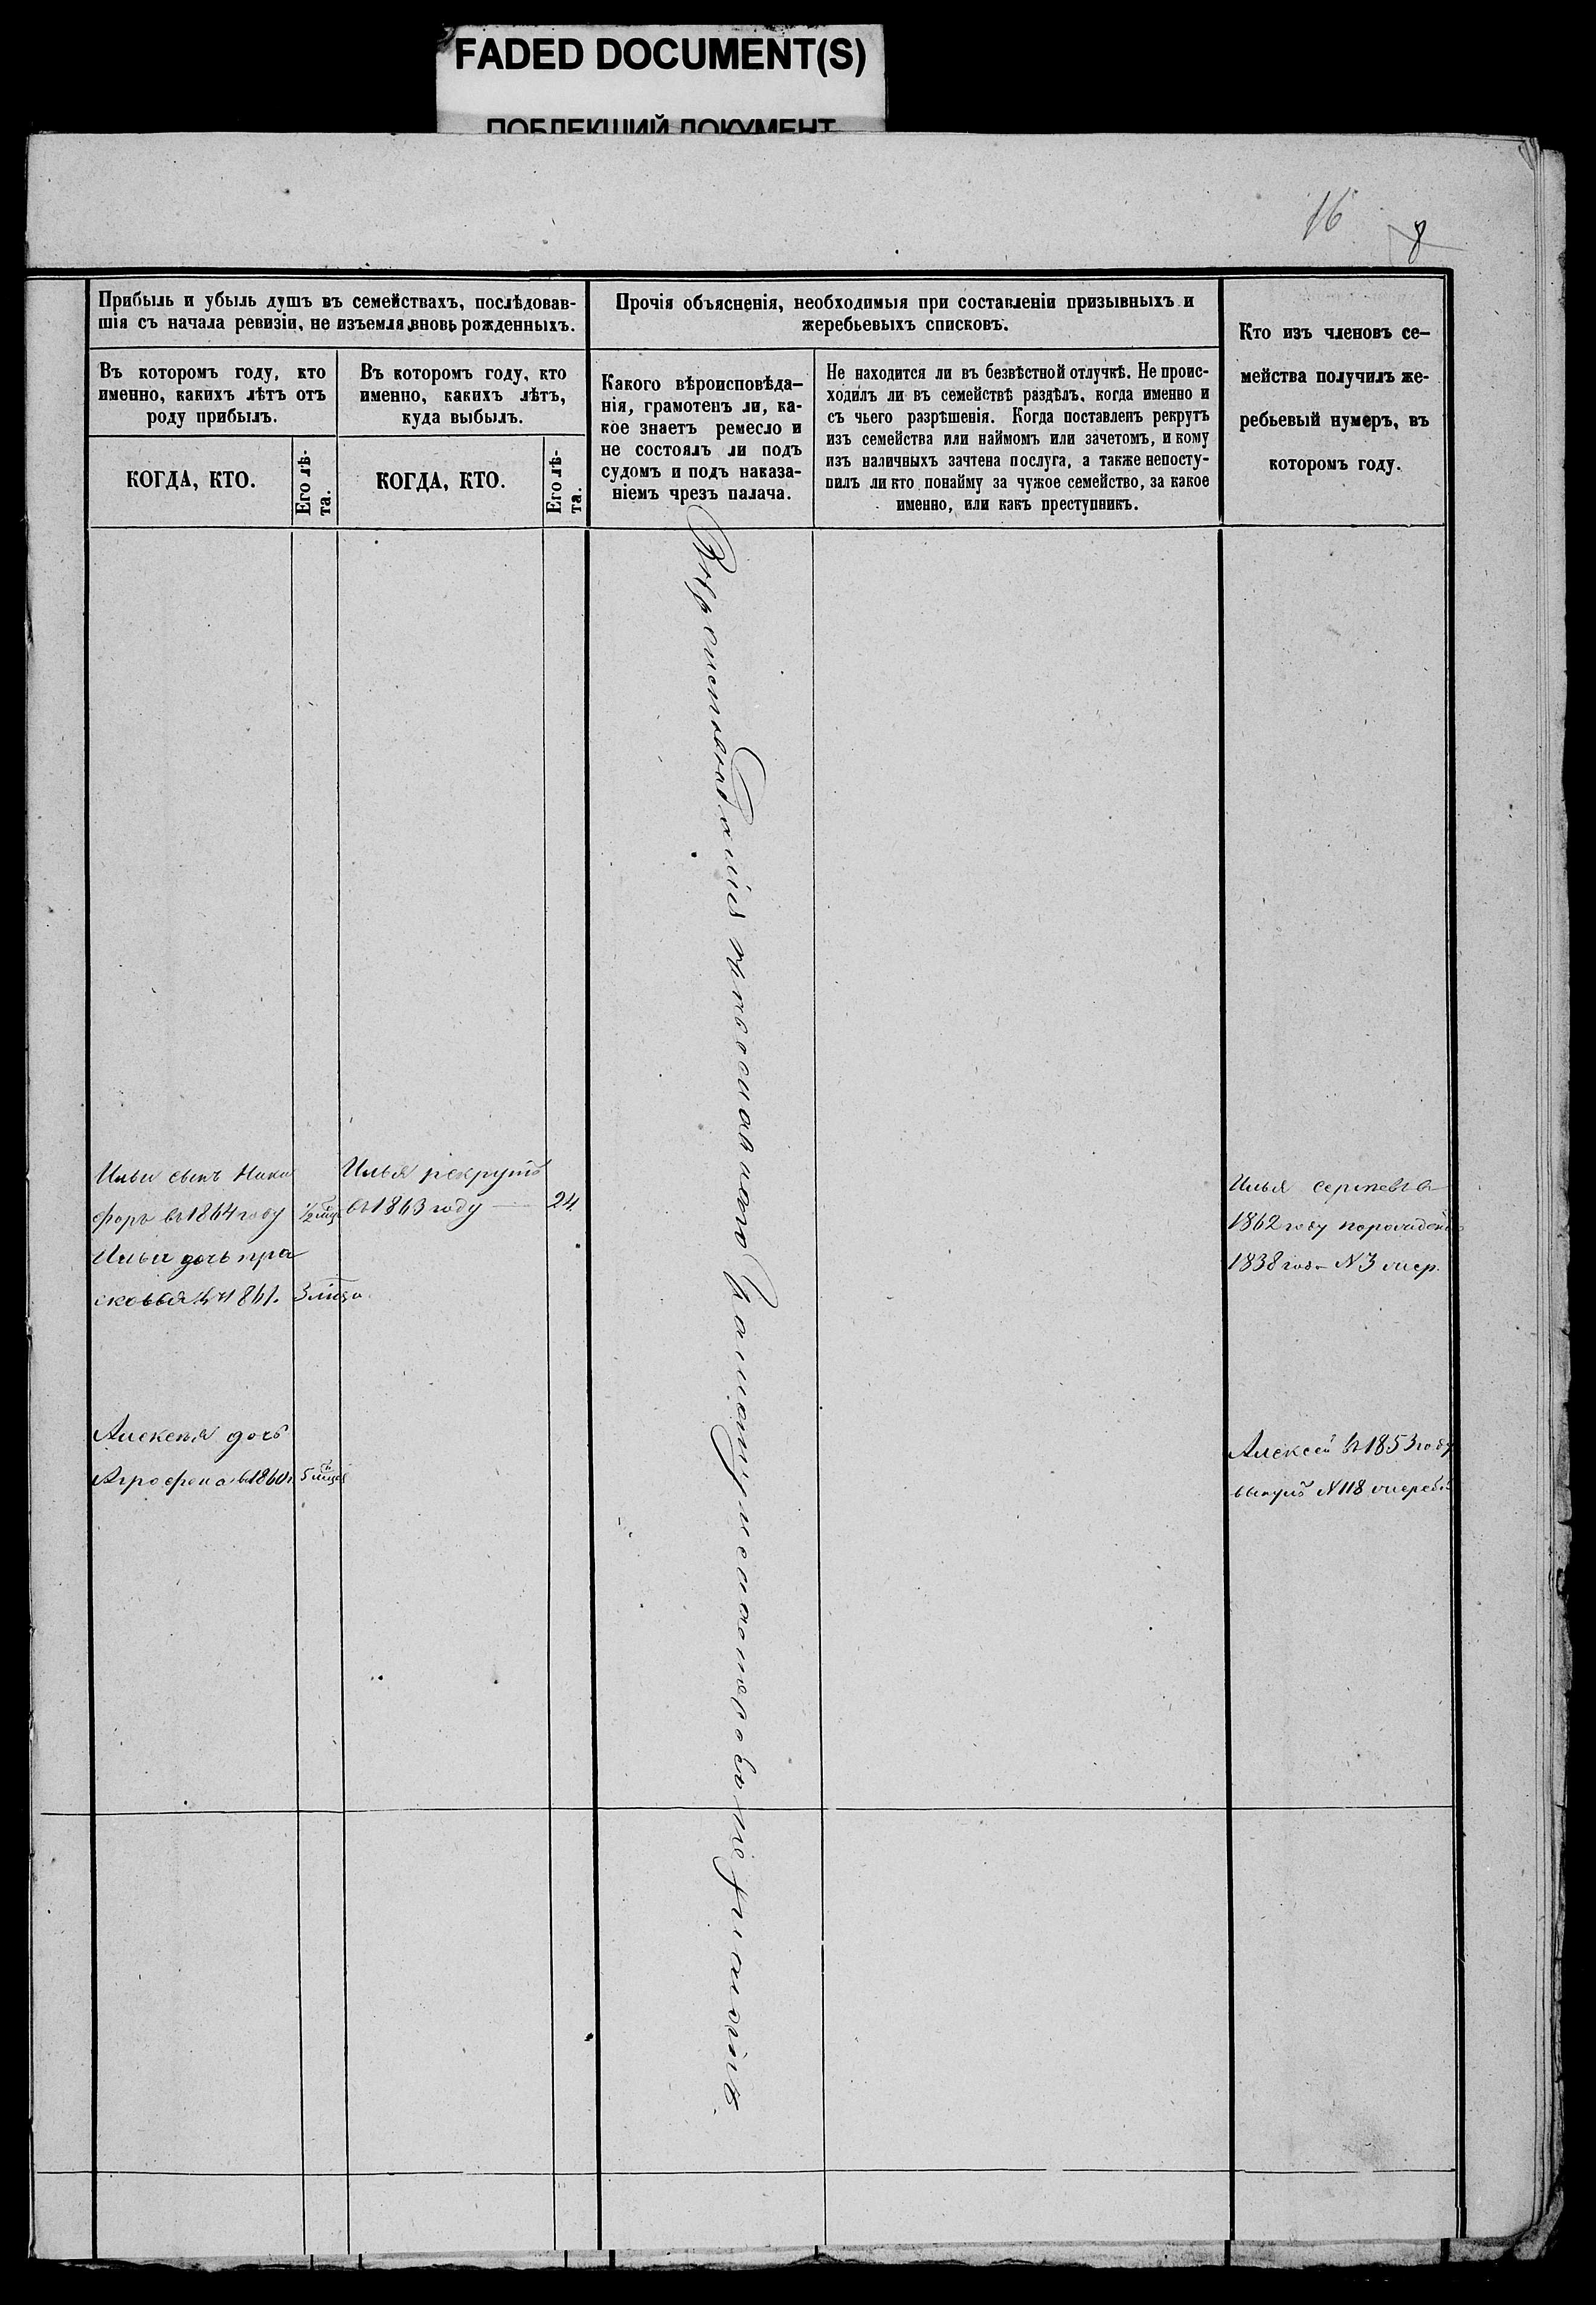 FADED DOCUMENT(S)
ПОБЛЕКШИЙ ДОКУМЕНТ
16
8
Прибыль и убыль душъ въ семействахъ, послѣдовав-
шія съ начала ревизіи, не изъемля вновь рожденныхъ.
Въ которомъ году, кто
именно, какихъ лѣтъ отъ
роду прибылъ.
Въ которомъ году, кто
именно, какихъ лѣтъ,
куда выбылъ.
КОГДА, КТО.
Его лѣ-
та.
КОГДА, КТО.
Его лѣ-
та.
Прочія объясненія, необходимыя при составленіи призывныхъ и
жеребьевыхъ списковъ.
Какого вѣроисповѣда-
нія, грамотенъ ли, ка-
кое знаетъ ремесло и
не состоялъ ли подъ
судомъ и подъ наказа-
ніемъ чрезъ палача.
Не находится ли въ безвѣстной отлучкѣ. Не проис-
ходилъ ли въ семействѣ раздѣлъ, когда именно и
съ чьего разрѣшенія. Когда поставленъ рекрутъ
изъ семейства или наймомъ или зачетомъ, и кому
изъ наличныхъ зачтена послуга, а также непосту-
пилъ ли кто понайму за чужое семейство, за какое
именно, или какъ преступникъ.
Кто изъ членовъ се-
мейства получилъ же-
ребьевый нумеръ, въ
которомъ году.
Ильи сынъ Ники
форъ въ 1864 году
Ильи дочь пра
сковья въ 1861.
3 мѣсяца
Илья рекрутъ
въ 1863 году 24
Вѣроисповѣданія православнаго
Илья
1862 году
1838 года N 3
Алексѣя дочь
Агрофена въ 1860
5
Алексѣй въ 1853 году
вынулъ N 118